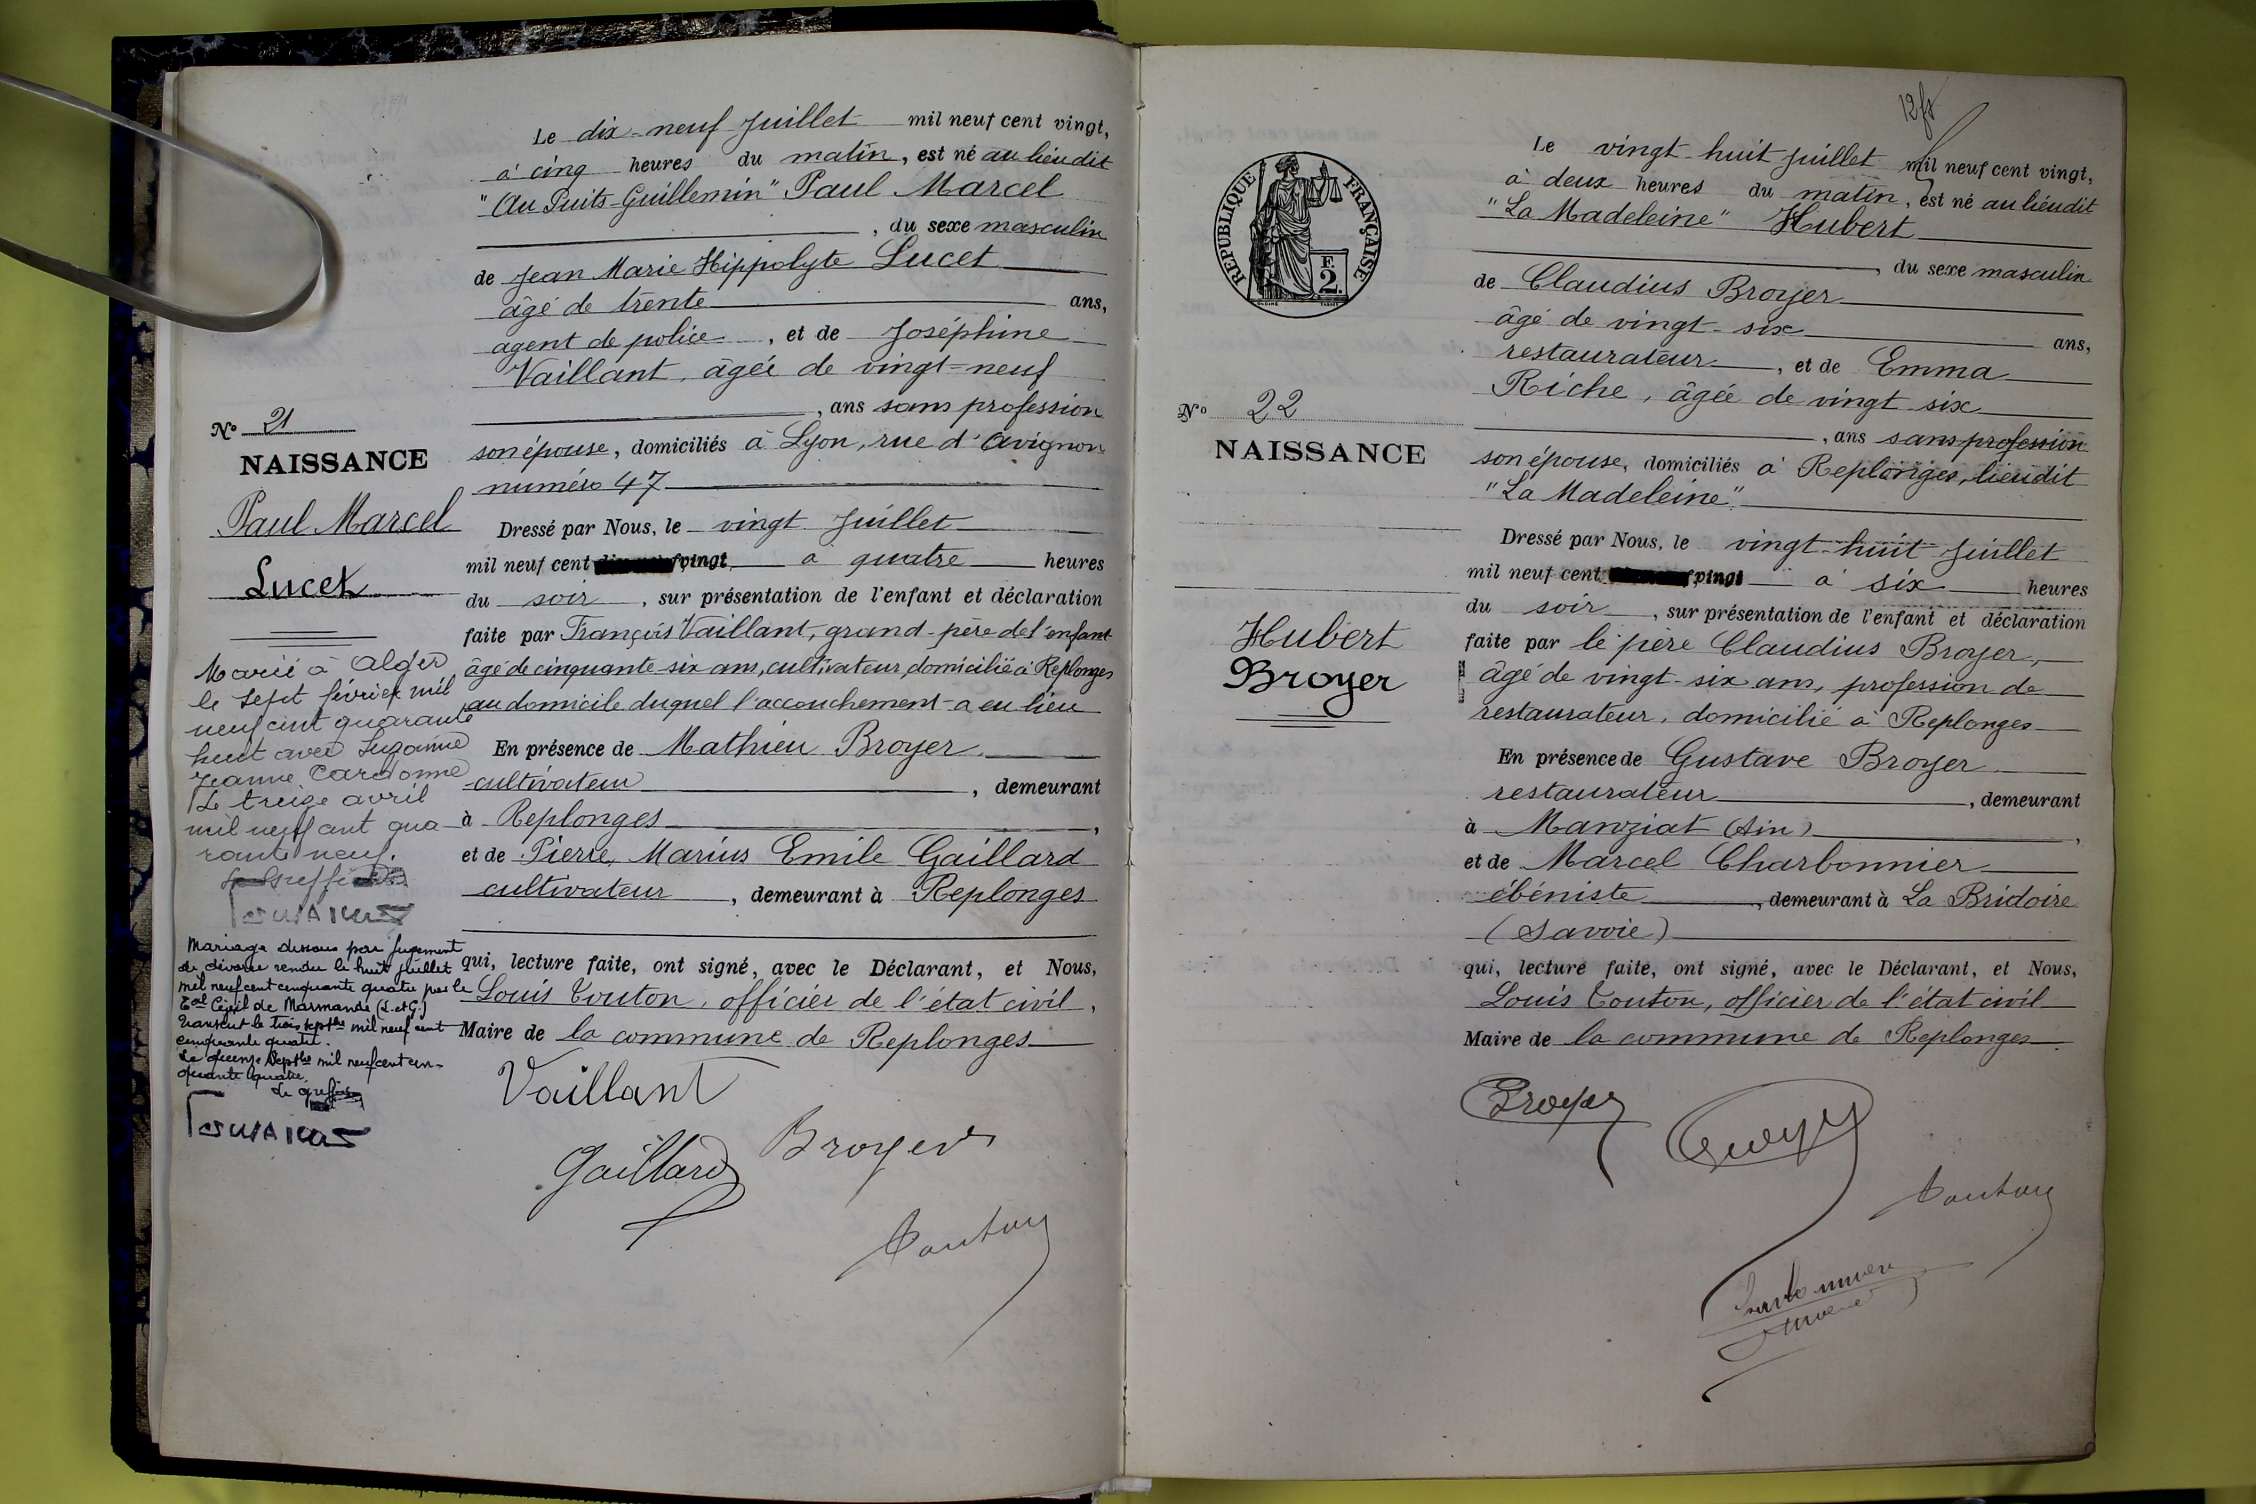 Le dix-neuf Juillet mil neuf cent vingt,
à cinq heures du matin, est né au lieudit
"Au Puits-Guillemin" Paul Marcel
, du sexe masculin
de Jean Marie Hippolyte Lucet
âgé de trente ans,
agent de police, et de Joséphine
Vaillant, âgée de vingt-neuf
, ans sans profession
son épouse, domiciliés à Lyon, rue d'Avignon
numéro 47
Dressé par Nous, le vingt Juillet
mil neuf cent vingt, à quatre heures
du soir, sur présentation de l'enfant et déclaration
faite par François Vaillant, grand-père de l'enfant
âgé de cinquante-six ans, cultivateur, domicilié à Replonges
au domicile duquel l'accouchement a eu lieu
En présence de Mathieu Broyer
cultivateur, demeurant
à Replonges,
et de Pierre, Marius Emile Gaillard
cultivateur, demeurant à Replonges
qui, lecture faite, ont signé, avec le Déclarant, et Nous,
Louis Touton, officier de l'état civil,
Maire de la commune de Replonges
Vaillant
Broyer
Gaillard
Touton
No 21
NAISSANCE
Paul Marcel
Lucet
Marié à Alger
le sept février mil
neuf cent quarante
huit avec Suzanne
Jeanne Cardonne
Le treize avril
mil neuf cent qua-
rante neuf.
Mariage dissous par jugement
de divorce rendu le huit juillet
mil neuf cent cinquante quatre par le
Tal Civil de Marmande (L.etG.)
Transcrit le trois septbre mil neuf cent
cinquante quatre.
Le quinze Septbre mil neuf cent cin-
quante quatre.
Le greffier
12 fs
RÉPUBLIQUE FRANÇAISE
F.
2.
Le vingt-huit Juillet mil neuf cent vingt,
à deux heures du matin, est né au lieudit
"La Madeleine" Hubert
, du sexe masculin
de Claudius Broyer
âgé de vingt-six ans,
restaurateur, et de Emma
Riche, âgée de vingt six
, ans sans profession
son épouse, domiciliés à Replonges, lieudit
"La Madeleine"
Dressé par Nous, le vingt-huit Juillet
mil neuf cent vingt à six heures
du soir, sur présentation de l'enfant et déclaration
faite par le père Claudius Broyer,
âgé de vingt-six ans, profession de
restaurateur, domicilié à Replonges
En présence de Gustave Broyer
restaurateur, demeurant
à Manziat (Ain),
et de Marcel Charbonnier
ébéniste, demeurant à La Bridoire
(Savoie)
qui, lecture faite, ont signé, avec le Déclarant, et Nous,
Louis Touton, officier de l'état civil
Maire de la commune de Replonges.
Broyer
Touton
No 22
NAISSANCE
Hubert
Broyer